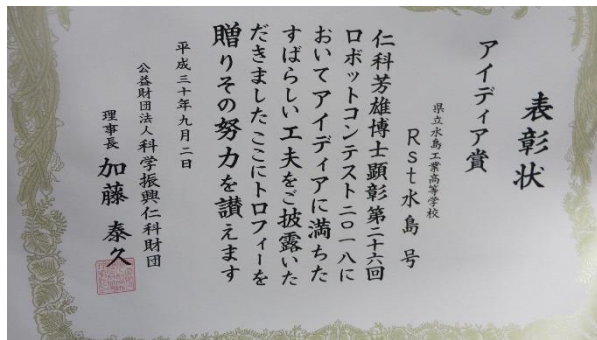 表彰状
アイディア賞
県立水島工業高等学校
Rst水島号
仁科芳雄博士顕彰第二十六回
ロボットコンテスト二〇一八に
おいてアイディアに満ちた
すばらしい工夫をご披露いた
だきましたここにトロフィーを
贈りその努力を讃えます
平成三十年九月二日
公益財団法人科学振興仁科財団
理事長 加藤泰久